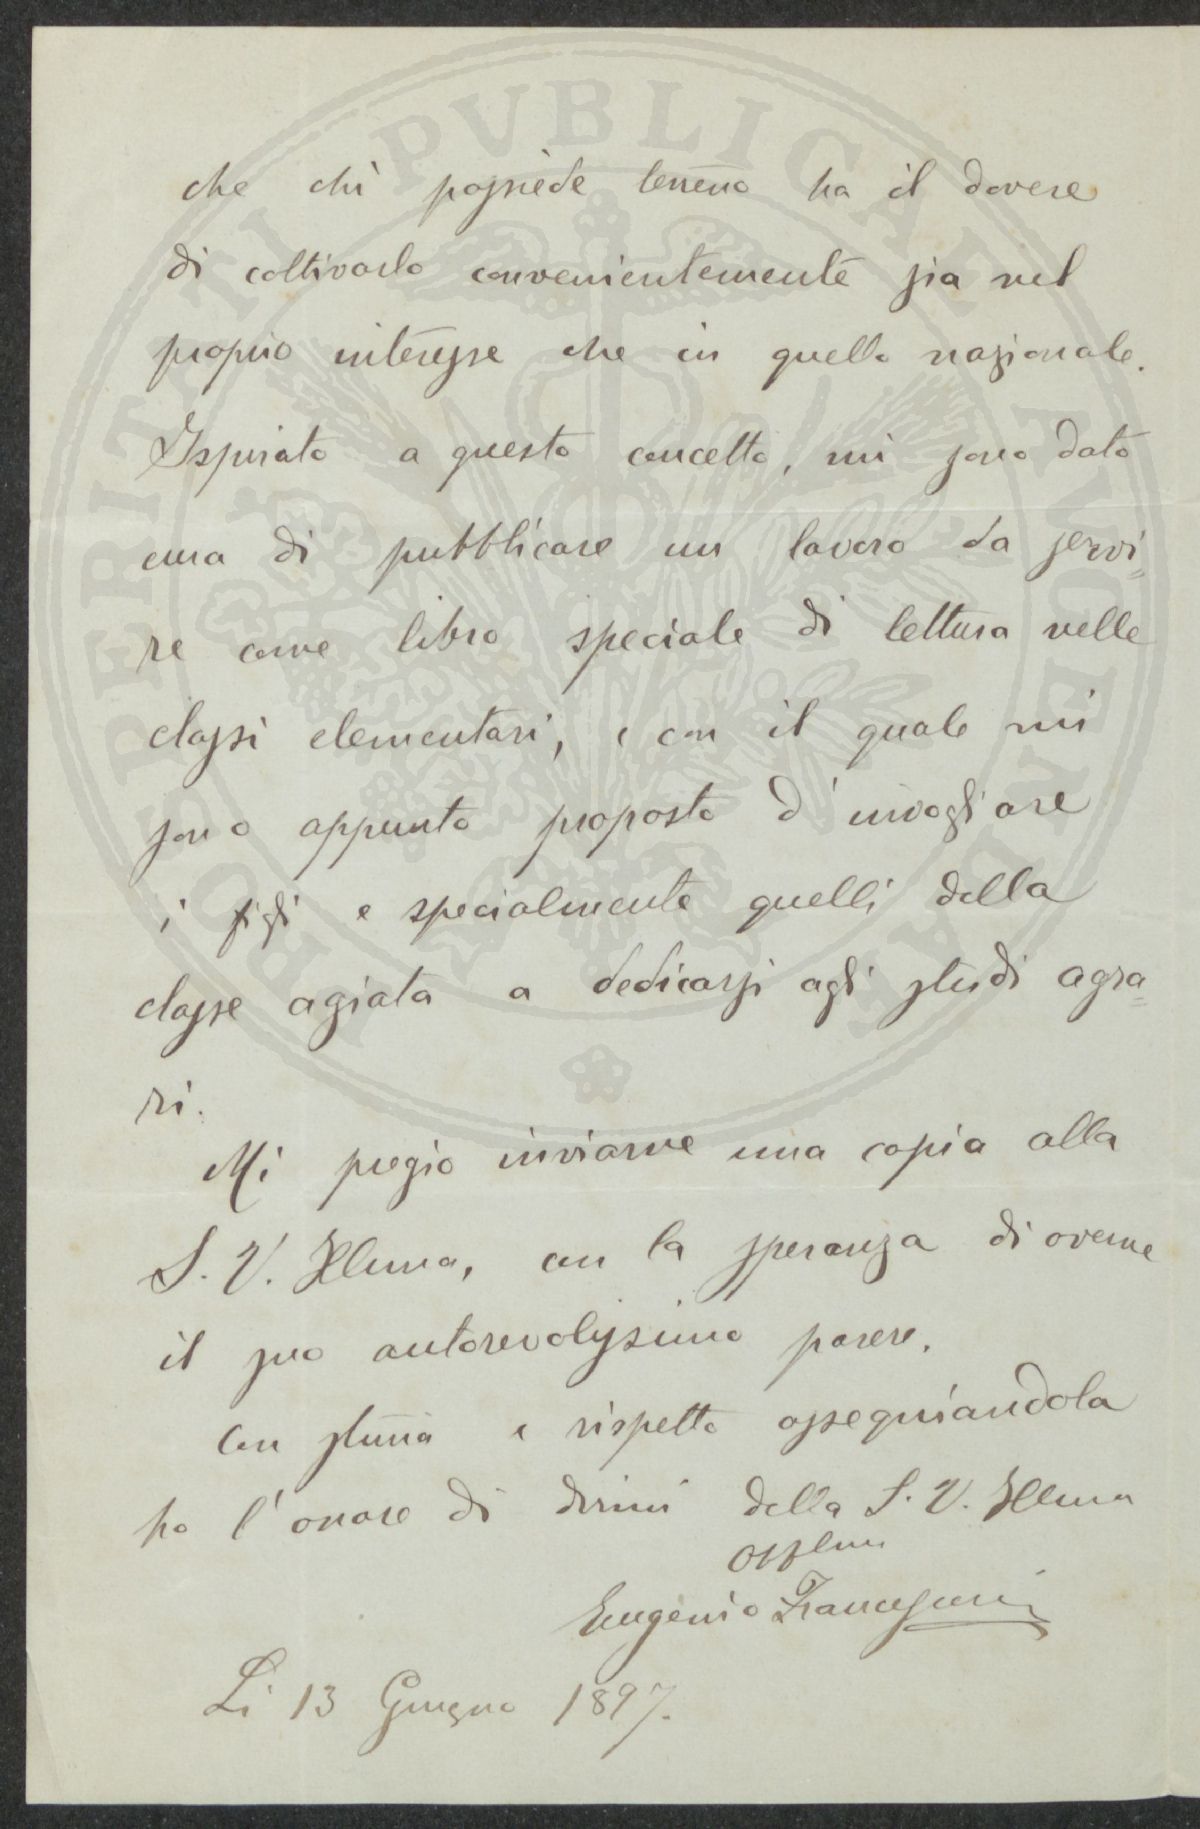 che chi possiede terreno ha il dovere
di coltivarlo convenientemente sia nel
proprio interesse che in quello nazionale.
Ispirato a questo concetto, mi sono dato
cura di pubblicare un lavoro da servi=
re come libro speciale di lettura nelle
classi elementari, e con il quale mi
sono appunto proposto d'invogliare
i figli e specialmente quelli della
classe agiata a dedicarsi agli studi agra=
ri.
Mi pregio inviarne una copia alla
S. V. Illma, con la speranza di averne
il suo autorevolissimo parere.
Con stima e rispetto ossequiandola
ho l'onore di dirmi della S. V. Illma
Eugenio
Li 13 Giugno 1897.
PROSPERITATI PVBLICAE AVGENDAE